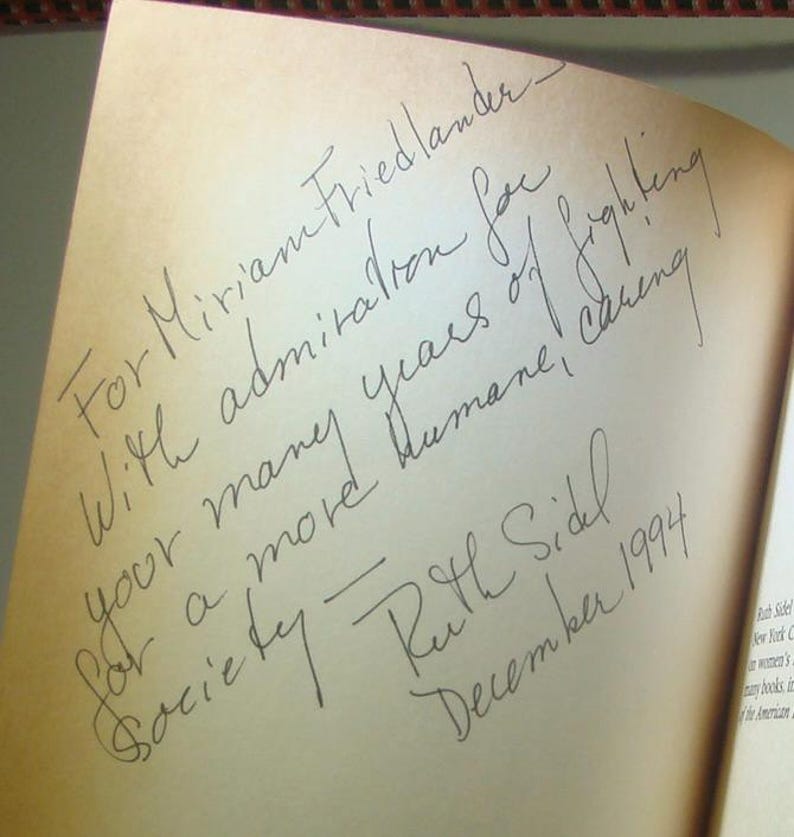 For Miriam Friedlander –
With admiration for
your many years of fighting
for a more humane, caring
society –
Ruth Sidel
December 1994
Ruth Sidel
New York C
on women's
many books, in
of the American